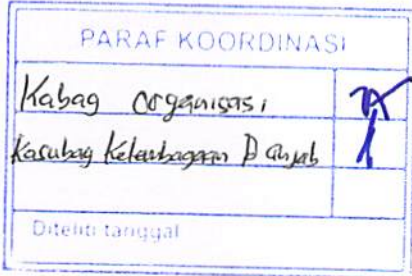 PARAF KOORDINASI
Kabag Organisasi
Kasubag Kelembagaan D Anjab
Diteliti tanggal